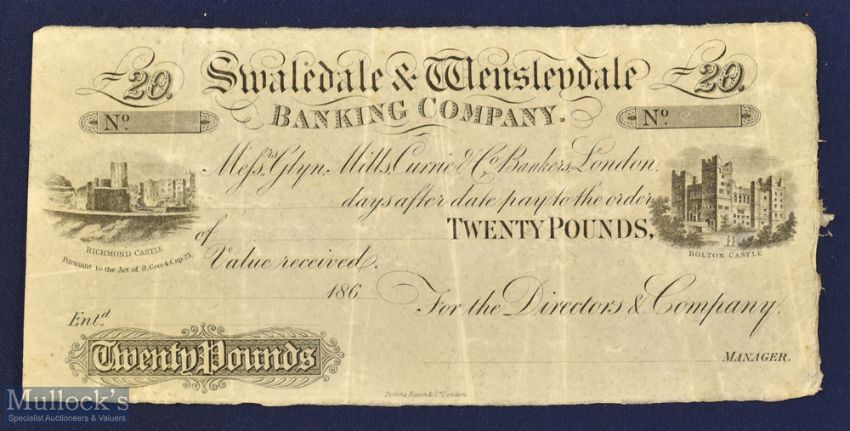 £20. Swaledale & Wensleydale £20.
BANKING COMPANY.
No No
Messrs Glyn, Mills, Currie & Co Bankers, London,
days after date pay to the order
of TWENTY POUNDS,
Value received.
RICHMOND CASTLE
Pursuant to the Act of 9, Geo. 4 Cap 23.
BOLTON CASTLE
186
For the Directors & Company.
Entd
Twenty Pounds
MANAGER.
Perkins, Bacon & Co London.
Mullock's
Specialist Auctioneers & Valuers